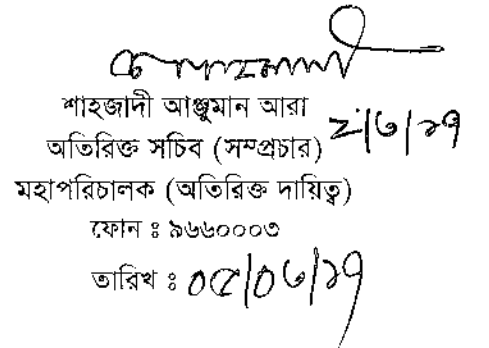 শাহজাদী আঞ্জুমান আরা
অতিরিক্ত সচিব (সম্প্রচার)
মহাপরিচালক (অতিরিক্ত দায়িত্ব)
ফোন ঃ ৯৬৬০০০৩
তারিখ ঃ ০৫/০৬/১৭